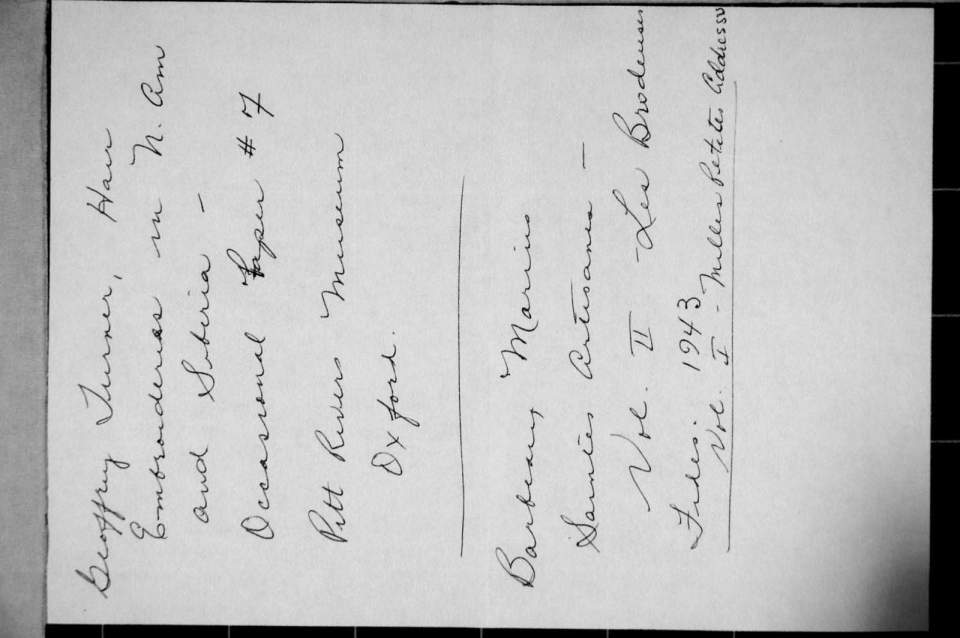 Geoffrey Turner, Hair
Embroideries in N. Am
and Siberia -
Occasional Paper # 7
Pitt Rivers Museum
Oxford.
Barbeau, Marius
Saintes Artisanes -
Vol. II - Les Brodeuses
Fides. 1943
Vol. I - Milles Petites Addresses